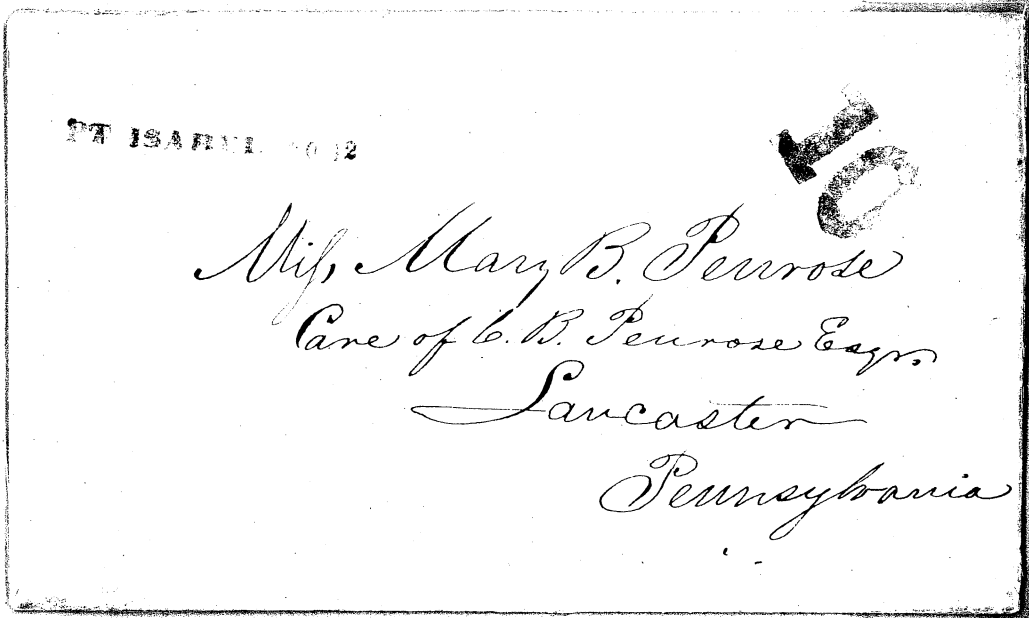 PT ISABEL
10
Miſs, Mary B. Penrose
Care of C. B. Penrose Esqr.
Lancaster
Pennsylvania